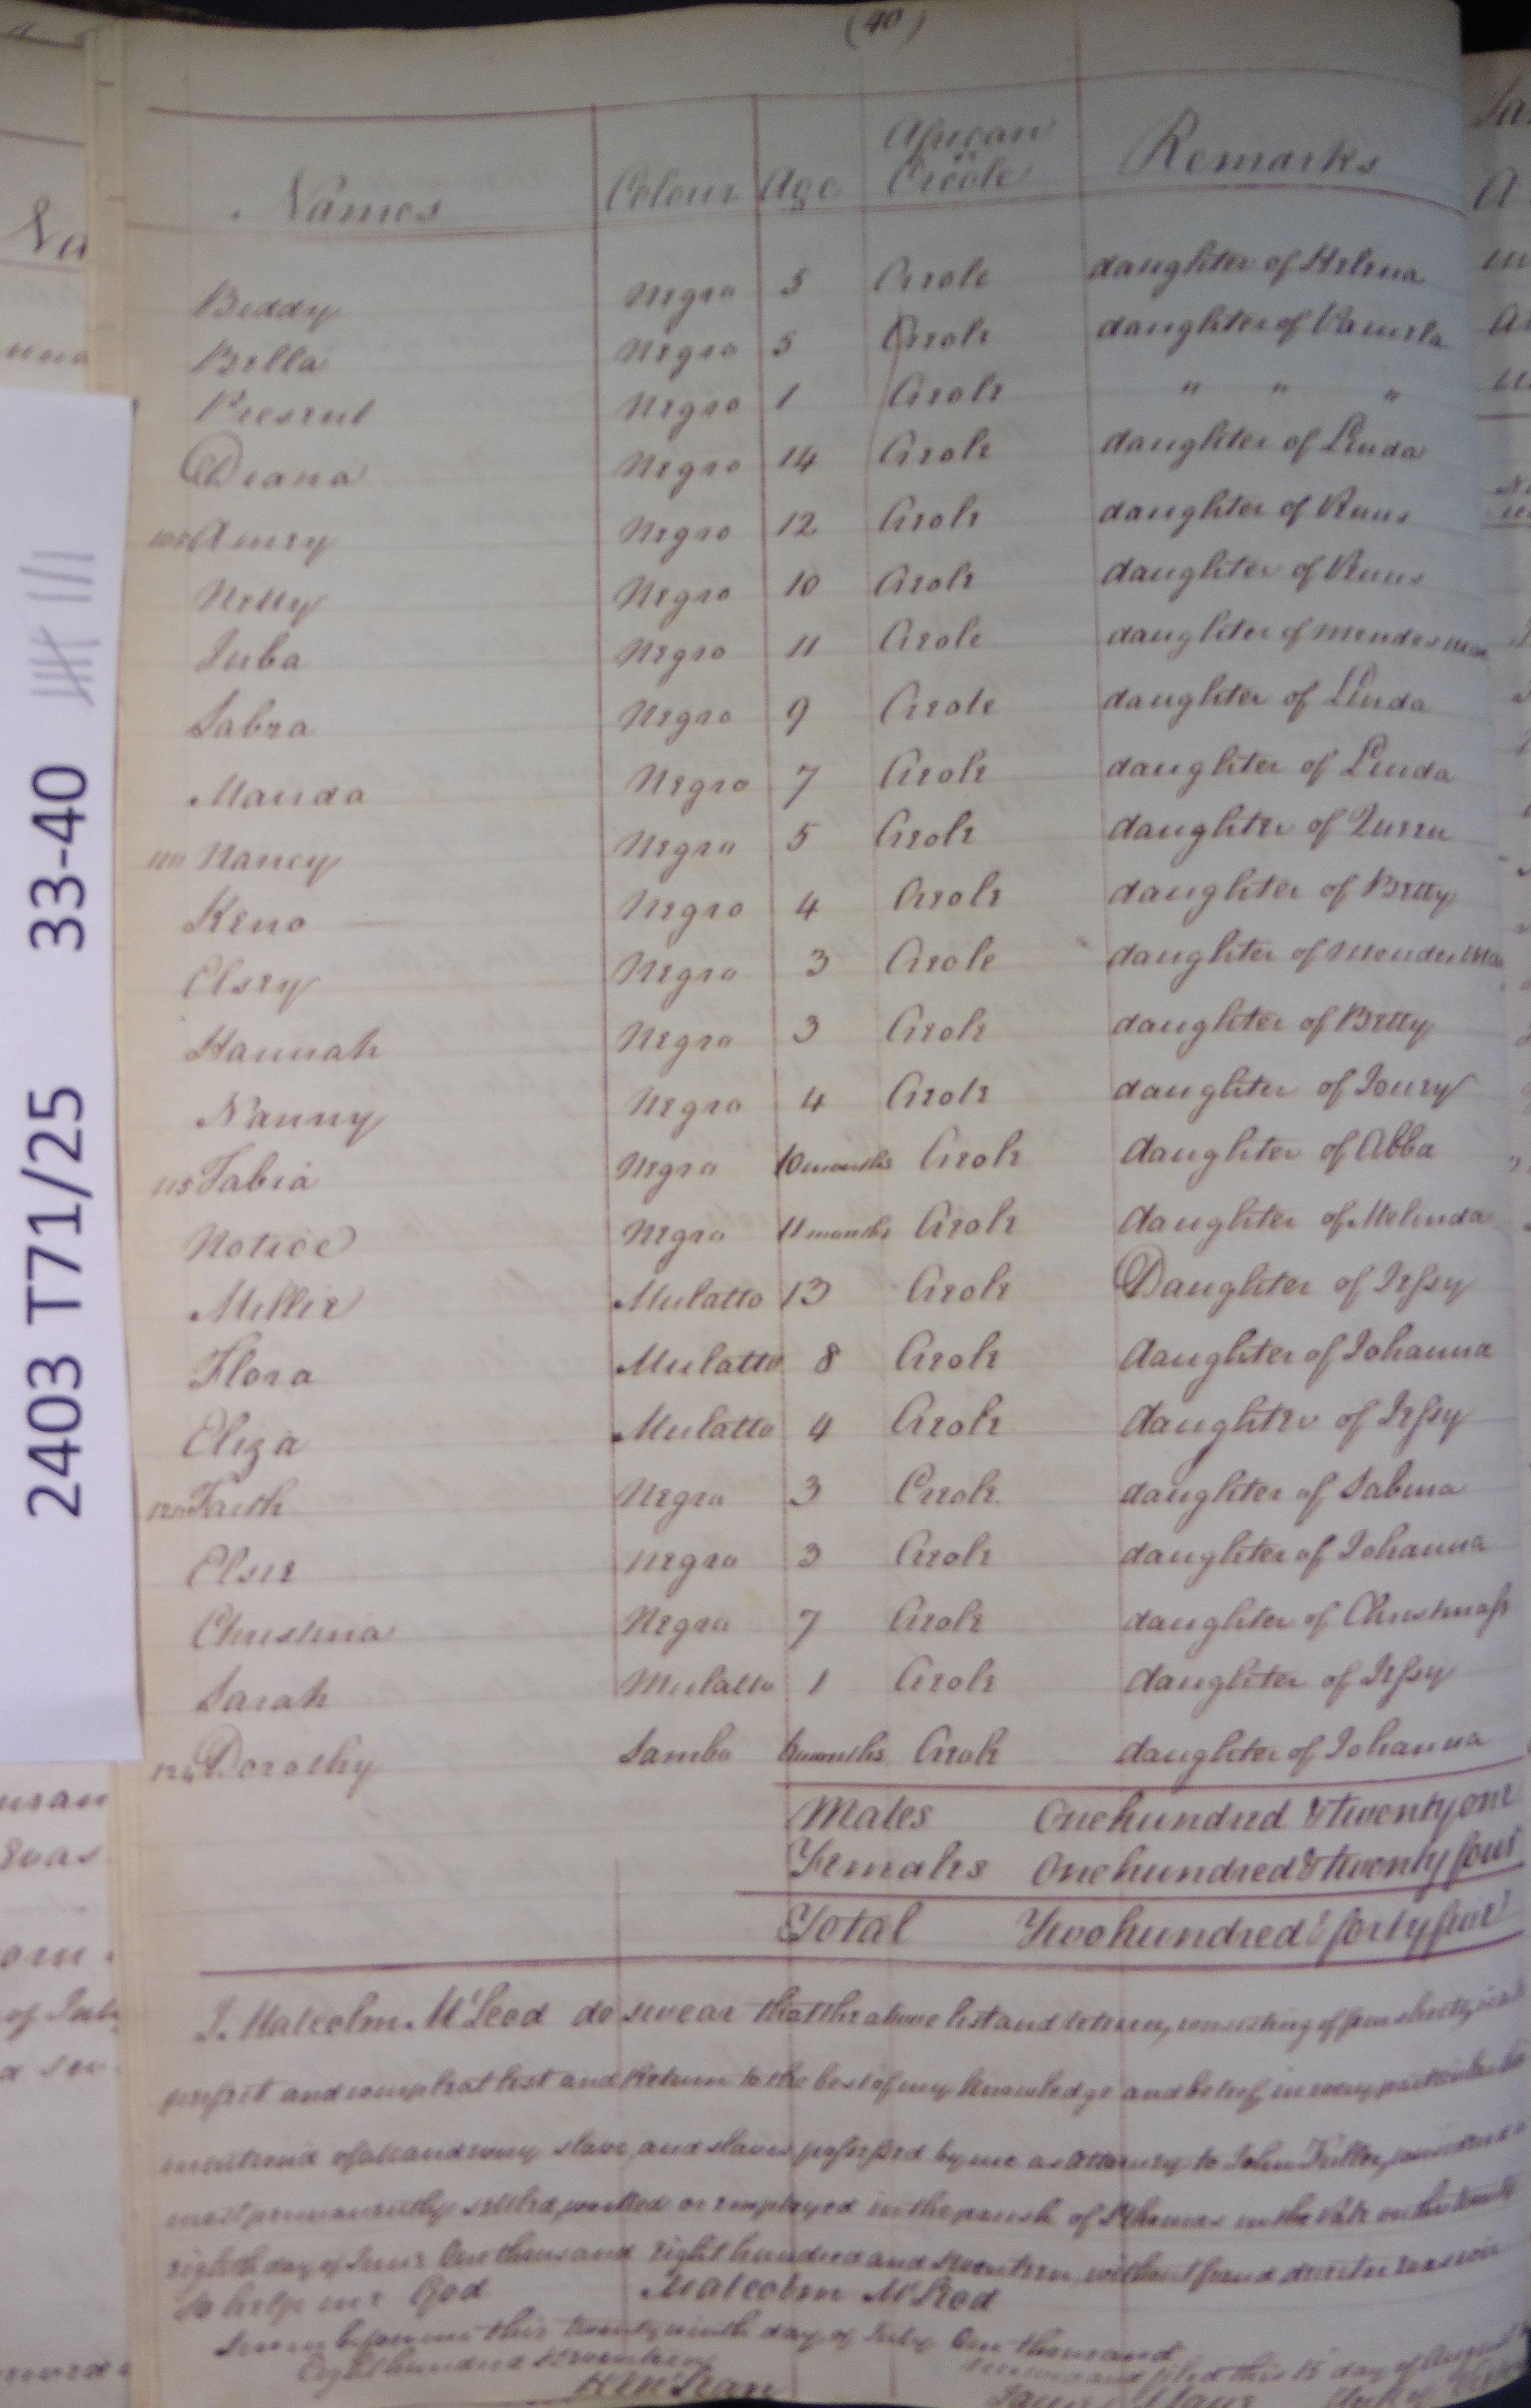 (40)
Names Colour Age African or Creole Remarks
Biddy Negro 5 Creole daughter of Helena
Bella Negro 5 Creole daughter of Pamela
Present Negro 1 Creole " " "
Diana Negro 14 Creole daughter of Linda
105 Amey Negro 12 Creole daughter of Venus
Netty Negro 10 Creole daughter of Venus
Juba Negro 11 Creole daughter of
Sabra Negro 9 Creole daughter of Linda
Manda Negro 7 Creole daughter of Linda
110 Nancy Negro 5 Creole daughter of Queen
Keno Negro 4 Creole daughter of Betty
Elsey Negro 3 Creole daughter of
Hannah Negro 3 Creole daughter of Betty
Nanny Negro 4 Creole daughter of
115 Fabia Negro 10 months Creole daughter of Abba
Notice Negro 11 months Creole daughter of Melinda
Millie Mulatto 13 Creole Daughter of Jessy
Flora Mulatto 8 Creole daughter of Johanna
Eliza Mulatto 4 Creole daughter of Jessy
120 Faith Negro 3 Creole daughter of Sabina
Elsie Negro 3 Creole daughter of Johanna
Christina Negro 7 Creole daughter of Christmass
Sarah Mulatto 1 Creole daughter of Jessy
124 Dorothy Sambo 6 months Creole daughter of Johanna
Males One hundred & twenty one
Females One hundred & twenty four
Total Two hundred & forty five
I. Malcolm McLeod do swear that the above list and return, consisting of four sheets, is a
perfect and compleat list and Return to the best of my knowledge and belief, in every particular
mentiond of all and every slave and slaves possessed by me as Attorney to John Fuller, considered
most permanently settled, worked or employed in the parish of St Thomas in the Vale on the twenty
eighth day of June One thousand eight hundred and seventeen, without fraud, deceit or evasion
So help me God Malcolm McLeod
Sworn before me this twenty ninth day of July One thousand
Eight hundred & seventeen
and filed this 15 day of August
2403 T71/25 33-40